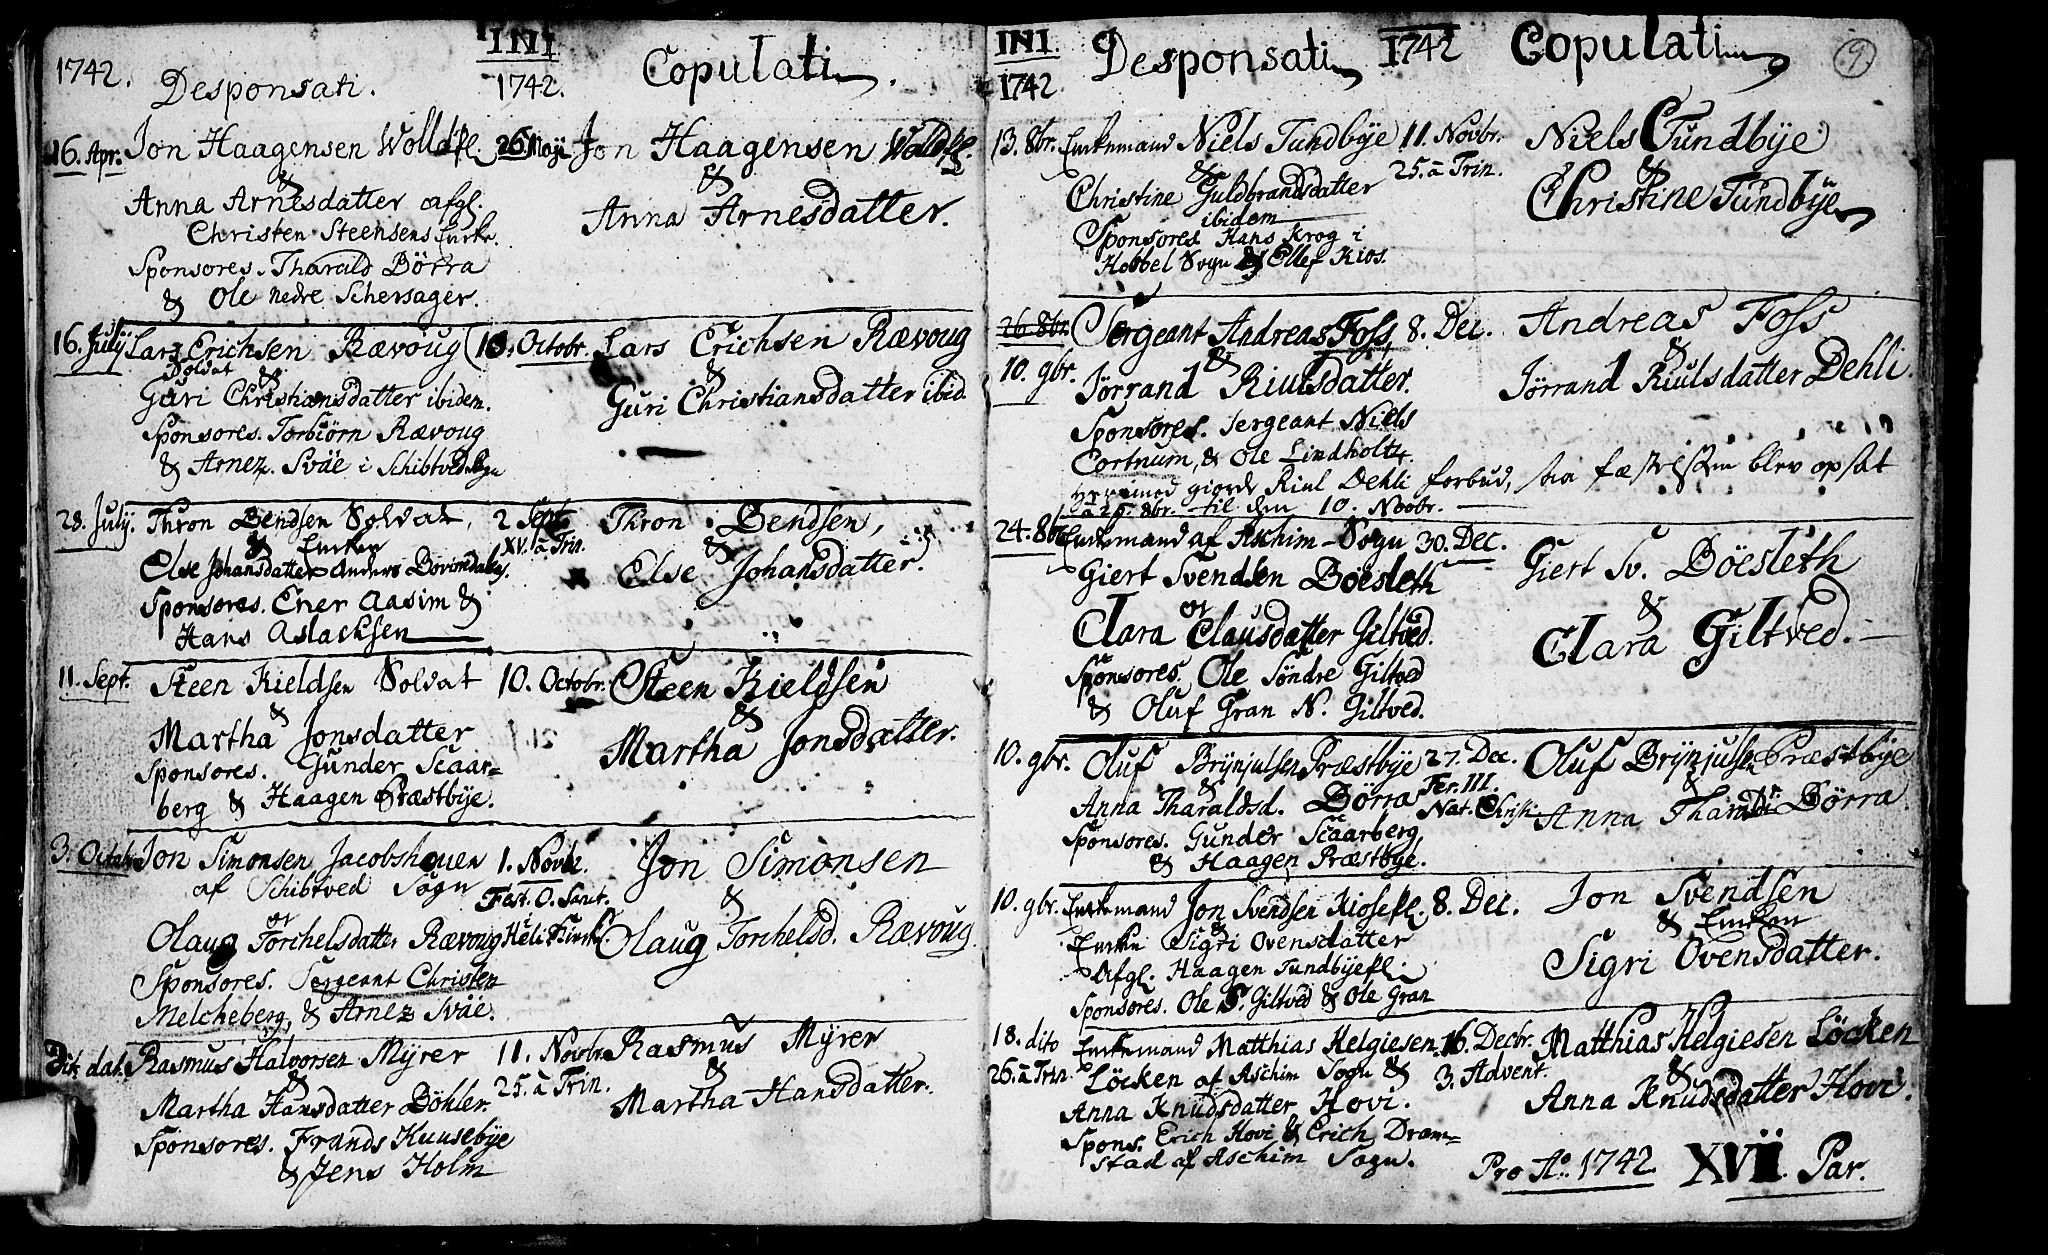 INI
1742.
Desponsati.
1742.
Copulati
16. Apr. Jon Haagensen Woldkl.
&
Anna Arnesdatter afgl.
Christen Steensens Enke.
Sponsores. Tharald Börra
& Ole nedre Schersager.
26 Maji Jon Haagensen Woldkl.
&
Anna Arnesdatter.
16. Julij Lars Erichsen Rævoug
Soldat &
Guri Christiansdatter ibidem.
Sponsores. Torbiörn Rævoug
& Arnez. Sväe i Schibtved Sogn
10. Octobr. Lars Erichsen Rævoug
&
Guri Christiansdatter ibid.
28. Julij. Thron Bendsen Soldat,
& Enken
Else Johansdatter Anders
Sponsores. Ener Aasim &
Hans Aslachsen
2 Sept. Thron Bendsen,
XV. à Trin. &
Else Johansdatter.
11. Sept. Steen Kieldsen Soldat
&
Martha Jonsdatter
Sponsores. Gunder Scaar=
berg & Haagen Præstbÿe.
10. Octobr. Steen Kieldsen
&
Martha Jonsdatter.
3. Octobr. Jon Simonsen Jacobshouen
af Schibtved Sogn
og
Olaug Torchelsdatter Rævoug
Sponsores. Sergeant Christen
Melcheberg, & Arnez Sväe.
1. Novbr. Jon Simonsen
Fest. O. Sanct. &
Olaug Torchelsd. Rævoug
Dit. dat. Rasmus Halvorsen Mÿrer
&
Martha Hansdatter Böhler.
Sponsores. Frands Kuusebÿe
& Jens Holm
11. Novbr. Rasmus Mÿrer
25. à Trin. &
Martha Hansdatter.
INI.
1742
Desponsati
1742
Copulati
9
13. 8br. Enkemand Niels Tundbÿe
&
Christine Guldbrandsdatter
ibidem
Sponsores Hans Krog i
Hobbel Sogn & Ellef Kios.
11. Novbr. Niels Tundbÿe
25. à Trin. &
Christine Tundbÿe
26. 8br. Sergeant Andreas Foss,
10. 9br. &
Jörrand Riulsdatter.
Sponsores. Sergeant Niels
Cortnum, & Ole Lindholtz.
Herimod giorde Riul Dehli forbud, saa fæstelsen blev opsat
à 26. 8br. til den 10. Novbr.
8. Dec. Andreas Foss
&
Jörrand Riulsdatter Dehli.
24. 8br. Enkemand af Aschim-Sogn
Giert Svendsen Böesleth
og
Clara Clausdatter Giltved.
Sponsores. Ole Söndre Giltved
& Oluf Gran N. Giltved.
30. Dec. Giert Sv. Böesleth
&
Clara Giltved.
10. 9br. Oluf Brÿnjulsen Præstbÿe
&
Anna Tharaldsd. Börra
Sponsores. Gunder Scaarberg
& Haagen Præstbÿe.
27. Dec. Oluf Brÿnjulsen Præstbÿe
Fer. III. &
Nat. Christi Anna Tharaldsdr. Börra.
10. 9br. Enkemand Jon Svendsen Kiosekl.
&
Enken Sigri Ovensdatter
Afgl. Haagen Tundbÿekl.
Sponsores. Ole S. Giltved & Ole Gran
8. Dec. Jon Svendsen
& Enken
Sigri Ovensdatter.
18. dito Enkemand Matthias Helgiesen
26. à Trin. Löcken af Aschim Sogn &
Anna Knudsdatter Hovi.
Spons. Erich Hovi & Erich Dram=
stad af Aschim Sogn.
16. Decbr. Matthias Helgiesen Löcken
3. Advent. &
Anna Knudsdatter Hovi.
Pro Ao. 1742. XVII. Par.